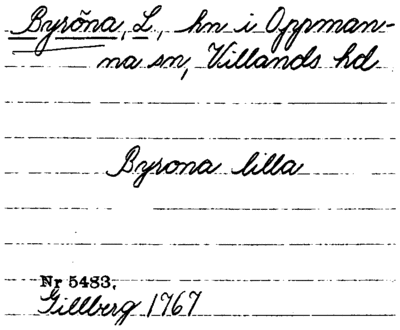 Byröna, L, hn i Oppman-
na sn, Villands hd
Byrona lilla
Nr 5483.
Gillberg 1767